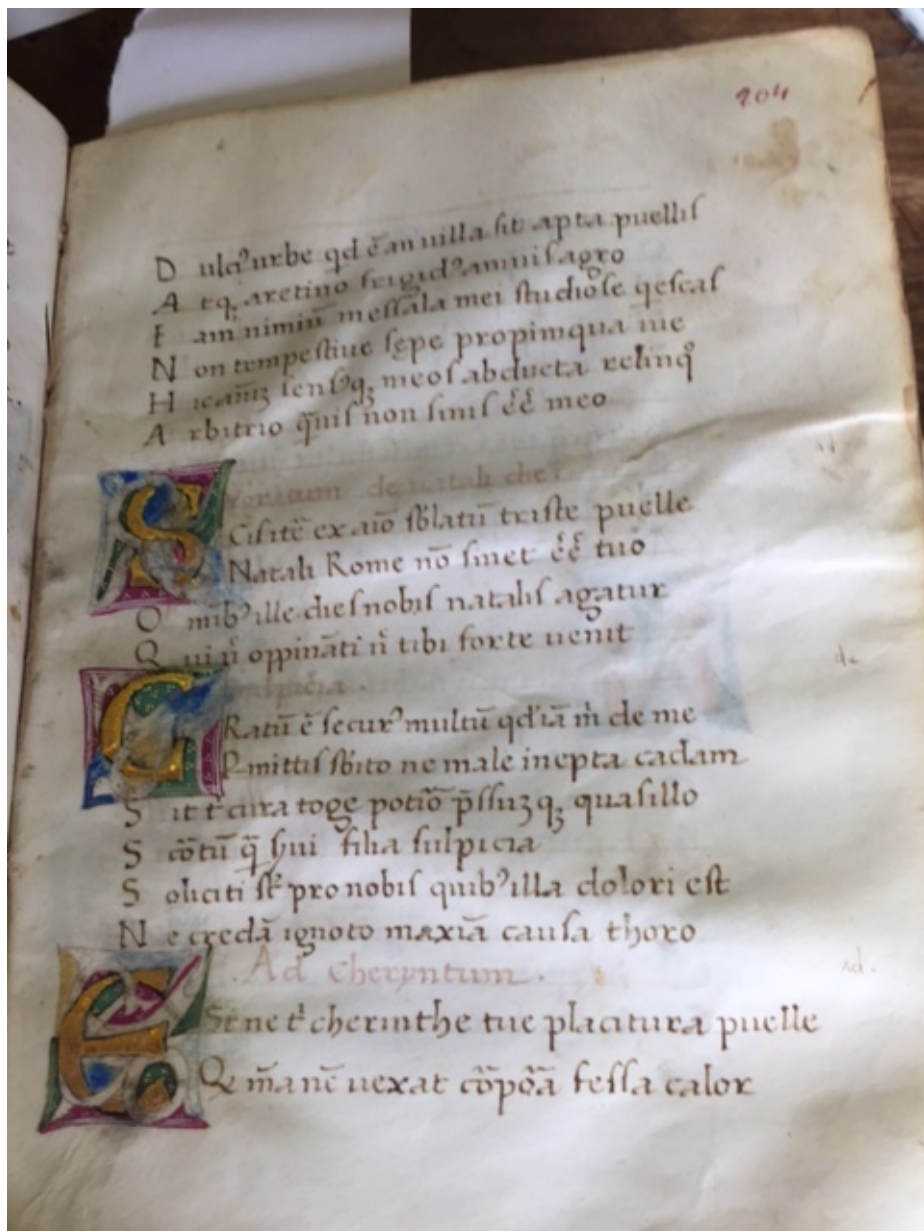 204
D ulci᾽ urbe qd ē an uilla sit apta puellis
A tq, aretino frigid᾽ amnis agro
I am nimiū messala mei studiose qescas
N on tempestiue sępe propimqua me
H ic aīuz sensq, meos abducta relinq᾽
A rbitrio q̄uis non sinis ēē meo
de natali
S Cis itē ex aīo sb̄latū triste puelle
Natali Rome nō sinet ēē tuo
O mīb᾽ ille dies nobis natalis agatur
Q ui n̄ oppināti n̄ tibi forte uenit
de
G Ratū ē secur᾽ multū qd iā m̄ de me
P mittis sb̄ito ne male inepta cadam
S it t᾽ cura toge potiō p̄ssuzq, quasillo
S cōtū q̄ s̄ui filia sulpicia
S oliciti st̄ pro nobis quib᾽ illa dolori est
N e credā ignoto maxīa causa thoro
Ad Cheryntum.
Ad.
E St ne t᾽ cherinthe tue placitura puelle
Q m̄a nē uexat cōpōa fessa calor